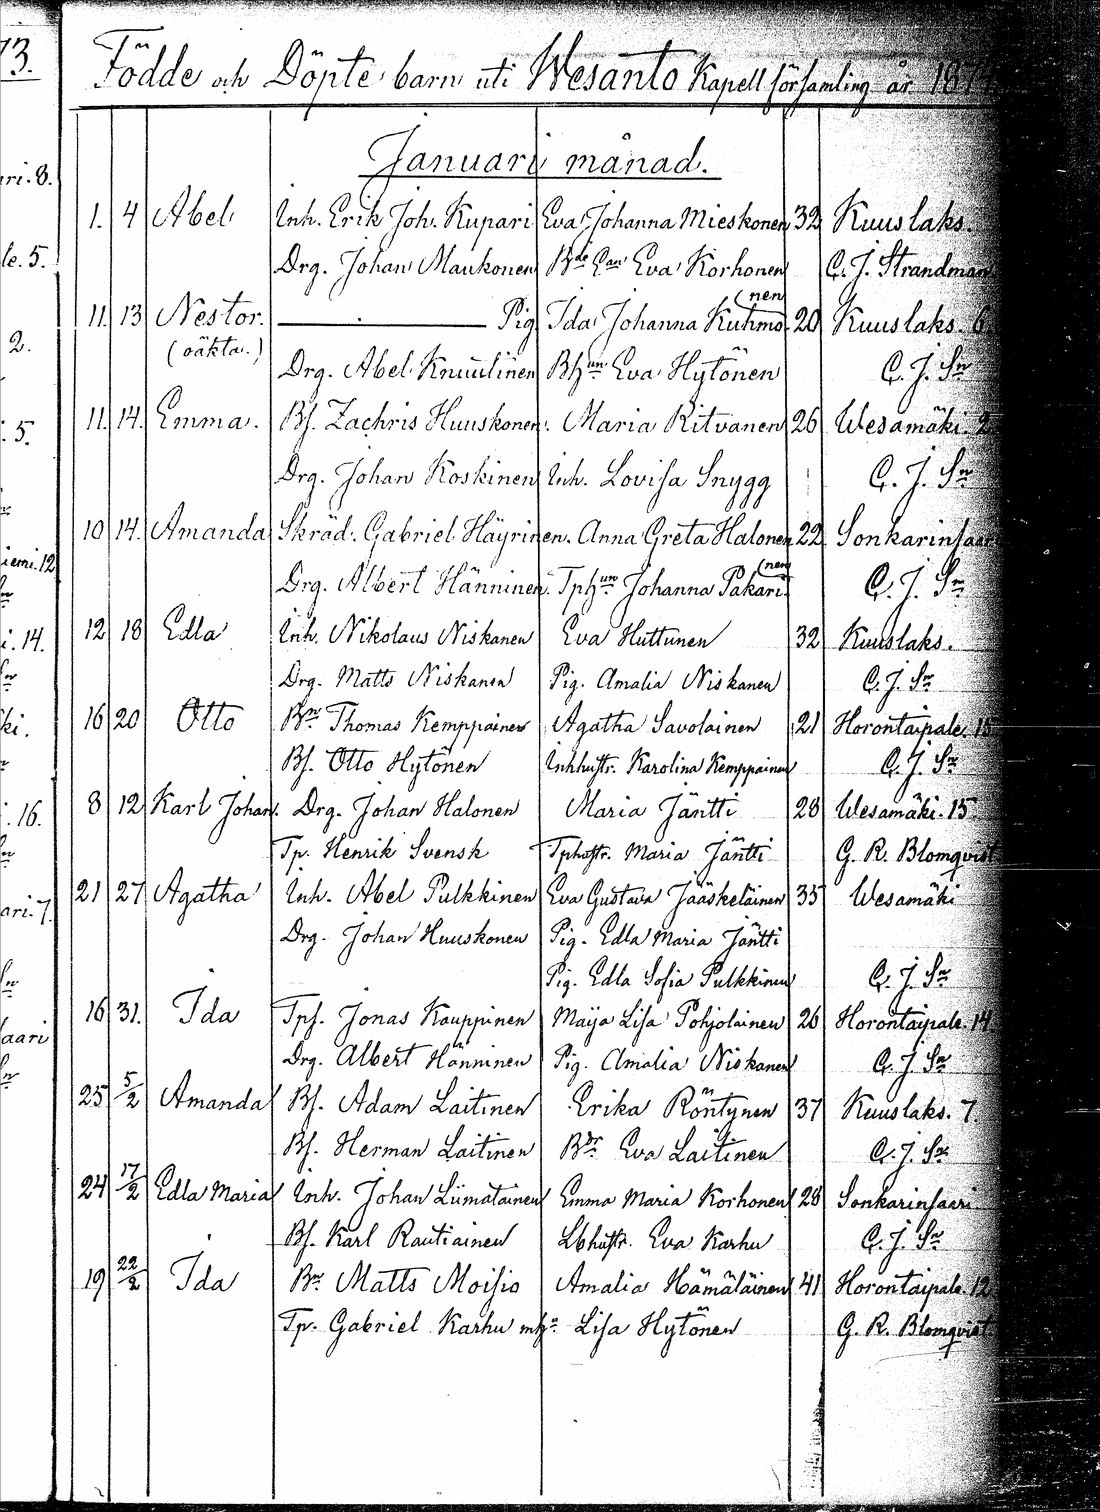 73.
Födde och Döpte barn uti Wesanto Kapell församling år 187
Januari månad.
ri. 8.
1. 4 Abel Inh. Erik Joh. Kupari Eva Johanna Mieskonen 32 Kuuslaks.
le. 5. Drg. Johan Maukonen Eva Korhonen C. J. Strandman
(nen
11. 13 Nestor. Pig. Ida Johanna Kuhmo 20 Kuuslaks. 6
2. (oäkta.) Drg. Abel Knuutinen Bhun Eva Hytönen C. J. Sn
5. 11. 14. Emma. Bf. Zachris Huuskonen. Maria Ritvanen 26 Wesamäki. 2
Drg. Johan Koskinen Inh. Lovisa Snygg C. J. Sn
10 14. Amanda Skräd. Gabriel Häyrinen. Anna Greta Halonen 22 Sonkarinsaari
iemi. 12 (nen
Drg. Albert Hänninen. Tphun Johanna Pakari C. J. Sn
i. 14. 12 18 Edla Inh. Nikolaus Niskanen Eva Huttunen 32 Kuuslaks.
Drg. Matts Niskanen Pig. Amalia Niskanen C. J. Sn
ki. 16 20 Otto Bn Thomas Kemppainen Agatha Savolainen 21 Horontaipale. 15
Bf. Otto Hytönen Inhhustr. Karolina Kemppainen C. J. Sn
. 16. 8 12 Karl Johan. Drg. Johan Halonen Maria Jäntti 28 Wesamäki. 15.
Tp. Henrik Svensk Tphustr. Maria Jäntti G. R. Blomqvist
ari. 7. 21 27 Agatha Inh. Abel Pulkkinen Eva Gustava Jääskeläinen 35 Wesamäki
Drg. Johan Huuskonen Pig. Edla Maria Jäntti
Pig. Edla Sofia Pulkkinen C. J. Sn
aari 16 31. Ida Tpf. Jonas Kauppinen Maija Lisa Pohjolainen 26 Horontaipale. 14
Drg. Albert Hänninen Pig. Amalia Niskanen C. J. Sn
25 5/2 Amanda Bf. Adam Laitinen Erika Röntynen 37 Kuuslaks. 7.
Bf. Herman Laitinen Bdr Eva Laitinen C. J. Sn
24 17/2 Edla Maria Inh. Johan Liimatainen Emma Maria Korhonen 28 Sonkarinsaari
Bf. Karl Rautiainen Lbhustr. Eva Karhu C. J. Sn
19 22/2 Ida Bn Matts Moisio Amalia Hämäläinen 41 Horontaipale. 12
Tp. Gabriel Karhu Lisa Hytönen G. R. Blomqvist